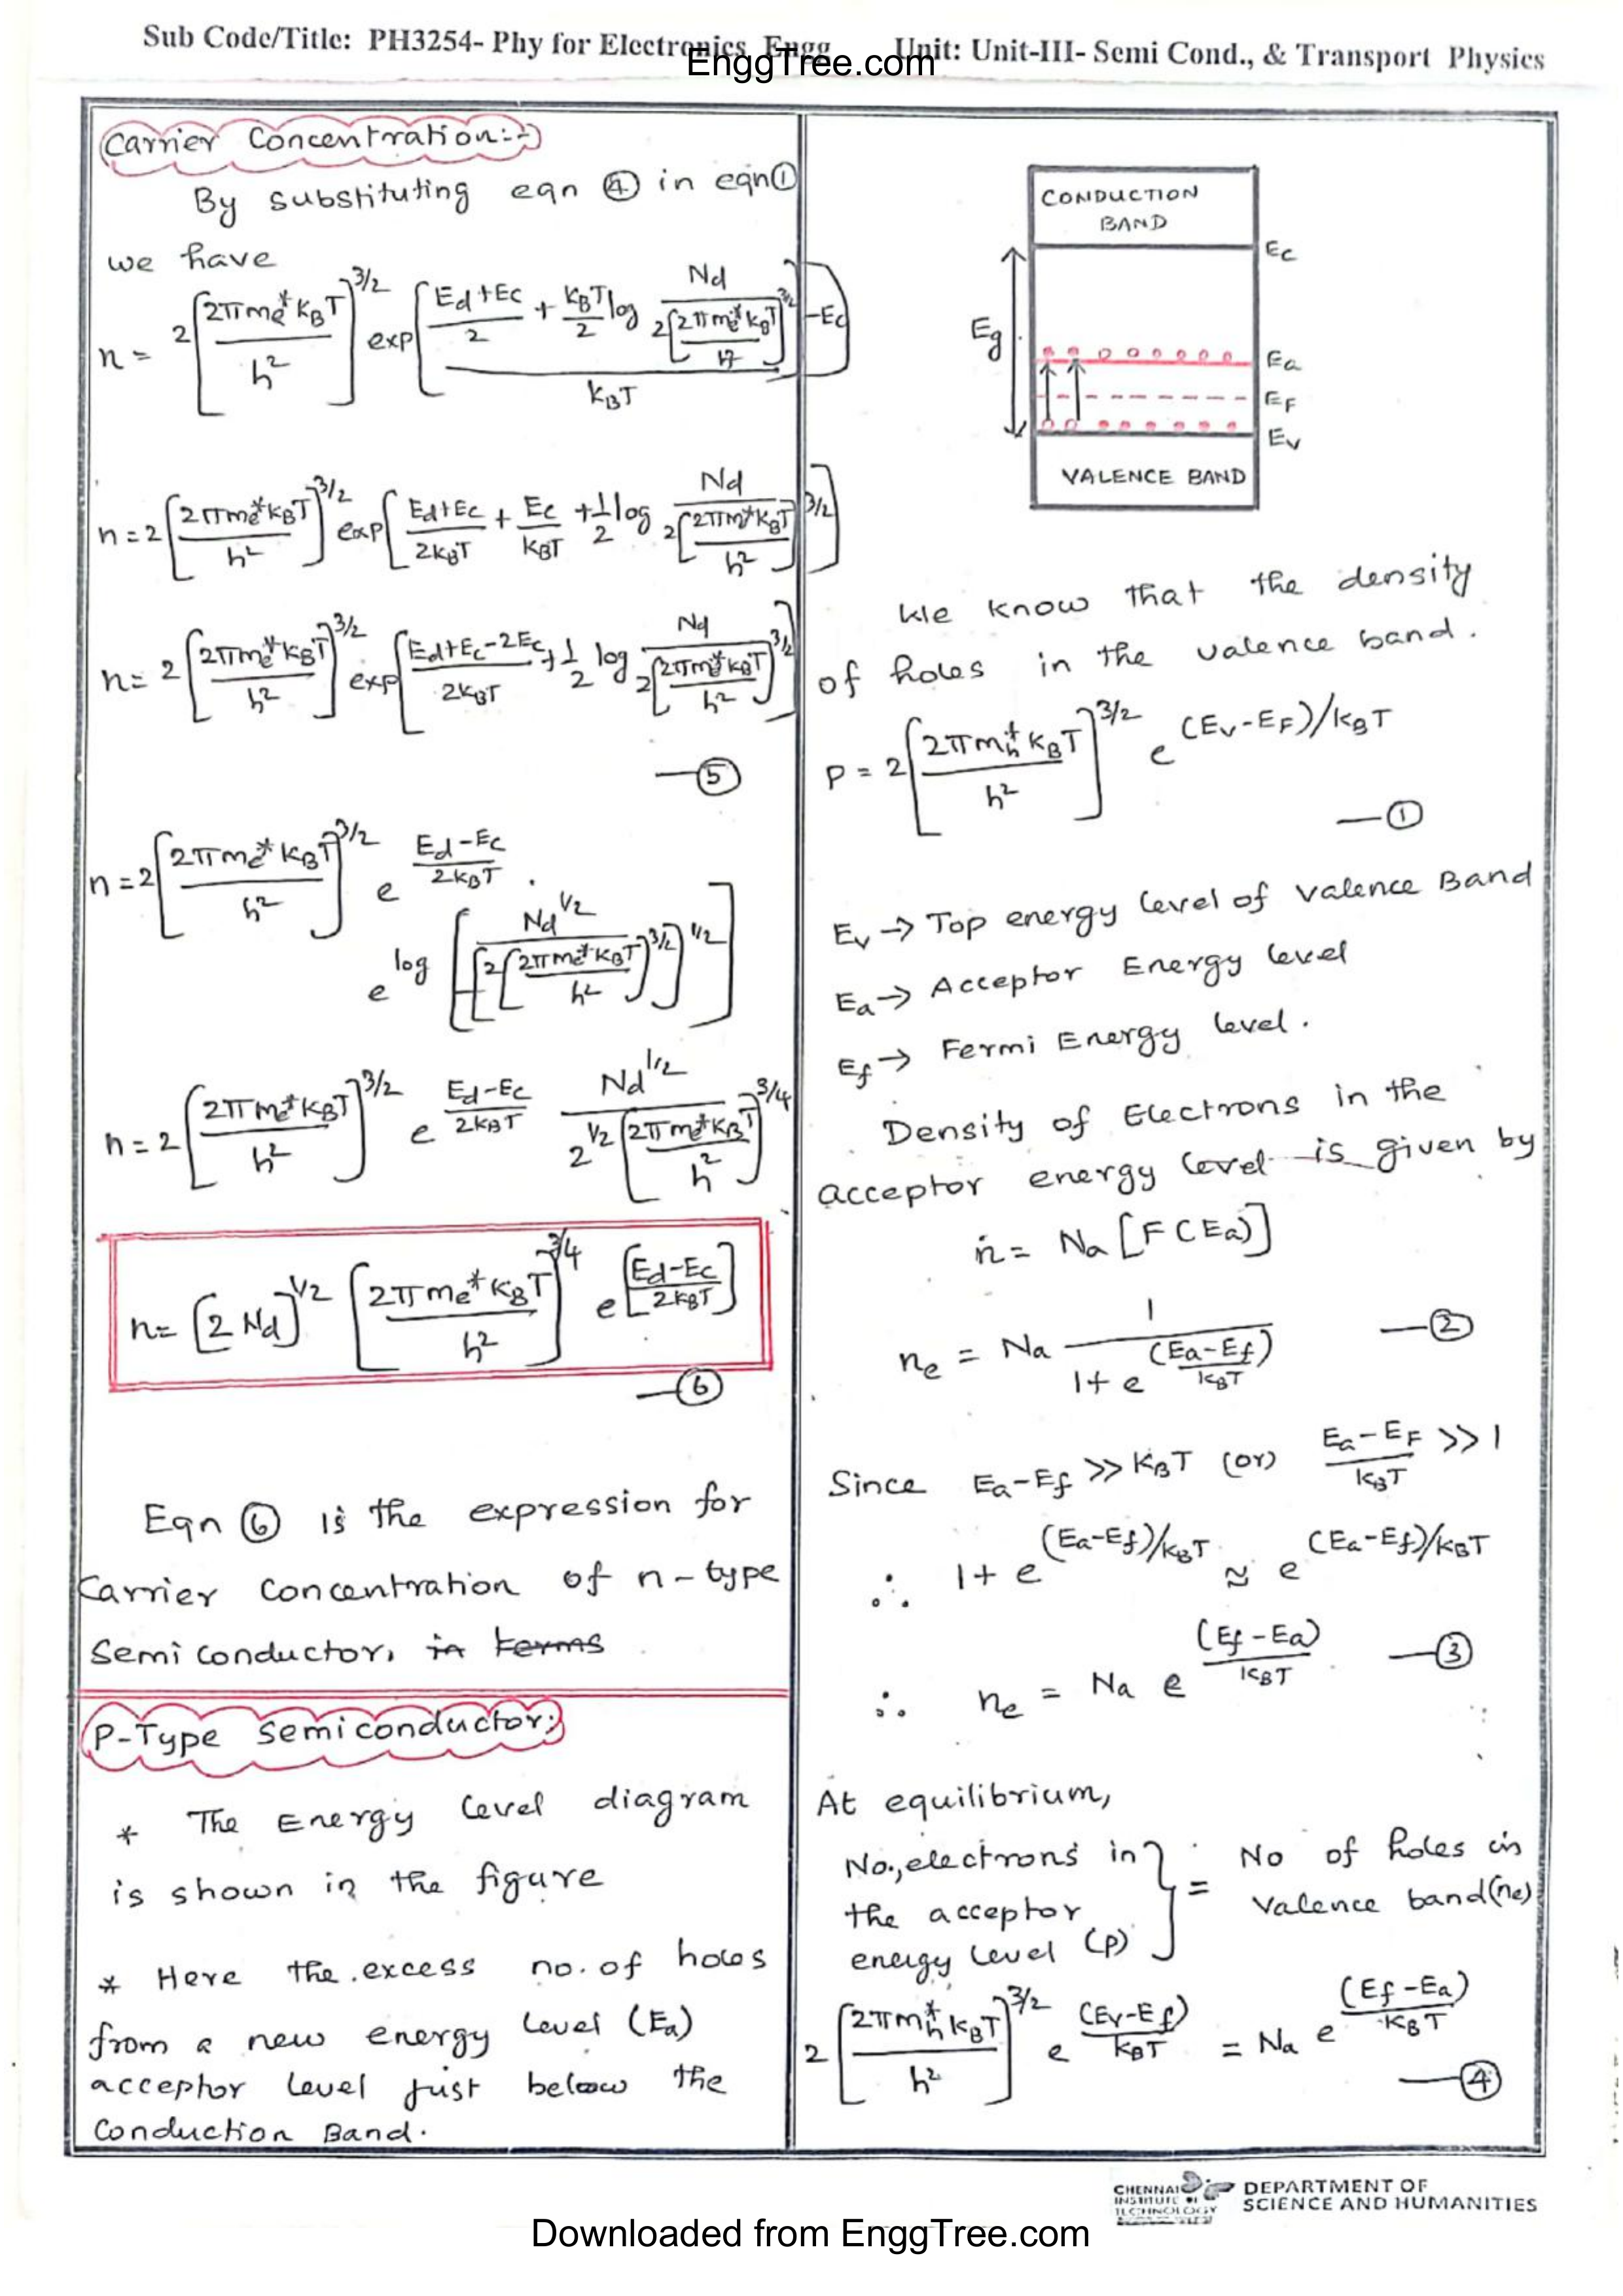 Sub Code/Title: PH3254- Phy for Electronics Engg Unit: Unit-III- Semi Cond., & Transport Physics
EnggTree.com
Carrier Concentration:-
By substituting eqn ④ in eqn①
we have
n = 2 [2πme*kBT / h²]^3/2 exp [ (Ed+Ec / 2 + kBT / 2 log Nd / 2[2πme*kBT / h²]^3/2 - Ec) / kBT ]
n = 2 [2πme*kBT / h²]^3/2 exp [ Ed+Ec / 2kBT + Ec / kBT + 1/2 log Nd / 2[2πm*kBT / h²]^3/2 ]
n = 2 [2πme*kBT / h²]^3/2 exp [ Ed+Ec-2Ec / 2kBT + 1/2 log Nd / 2[2πme*kBT / h²]^3/2 ]
—⑤
n = 2 [2πme*kBT / h²]^3/2 e^(Ed-Ec / 2kBT) .
e^log [ Nd^1/2 / [2[2πme*kBT / h²]^3/2]^1/2 ]
n = 2 [2πme*kBT / h²]^3/2 e^(Ed-Ec / 2kBT) Nd^1/2 / 2^1/2 [2πme*kBT / h²]^3/4
n = [2 Nd]^1/2 [2πme*kBT / h²]^3/4 e^[Ed-Ec / 2kBT]
—⑥
Eqn ⑥ is the expression for
Carrier Concentration of n-type
Semi conductor, in terms
P-Type Semiconductor:
* The Energy Level diagram
is shown in the figure
* Here the excess no. of holes
from a new energy Level (Ea)
acceptor Level just below the
Conduction Band.
CONDUCTION
BAND
Ec
Eg
Ea
EF
Ev
VALENCE BAND
We know that the density
of holes in the valence band.
P = 2 [2πmh*kBT / h²]^3/2 e^(Ev-EF)/kBT
—①
Ev → Top energy level of valence Band
Ea → Acceptor Energy level
Ef → Fermi Energy level.
Density of Electrons in the
acceptor energy level is given by
n = Na [F(Ea)]
ne = Na 1 / 1+e^((Ea-Ef) / kBT) —②
Since Ea-Ef >> KBT (or) Ea-EF / kBT >> 1
∴ 1+e^(Ea-Ef)/kBT ≈ e^(Ea-Ef)/kBT
∴ ne = Na e^((Ef-Ea) / kBT) —③
At equilibrium,
No., electrons in
the acceptor
energy level (p) } = No of holes in
valence band(ne)
2 [2πmh*kBT / h²]^3/2 e^((Ev-Ef) / kBT) = Na e^((Ef-Ea) / kBT)
—④
CHENNAI
INSTITUTE OF
TECHNOLOGY
DEPARTMENT OF
SCIENCE AND HUMANITIES
Downloaded from EnggTree.com